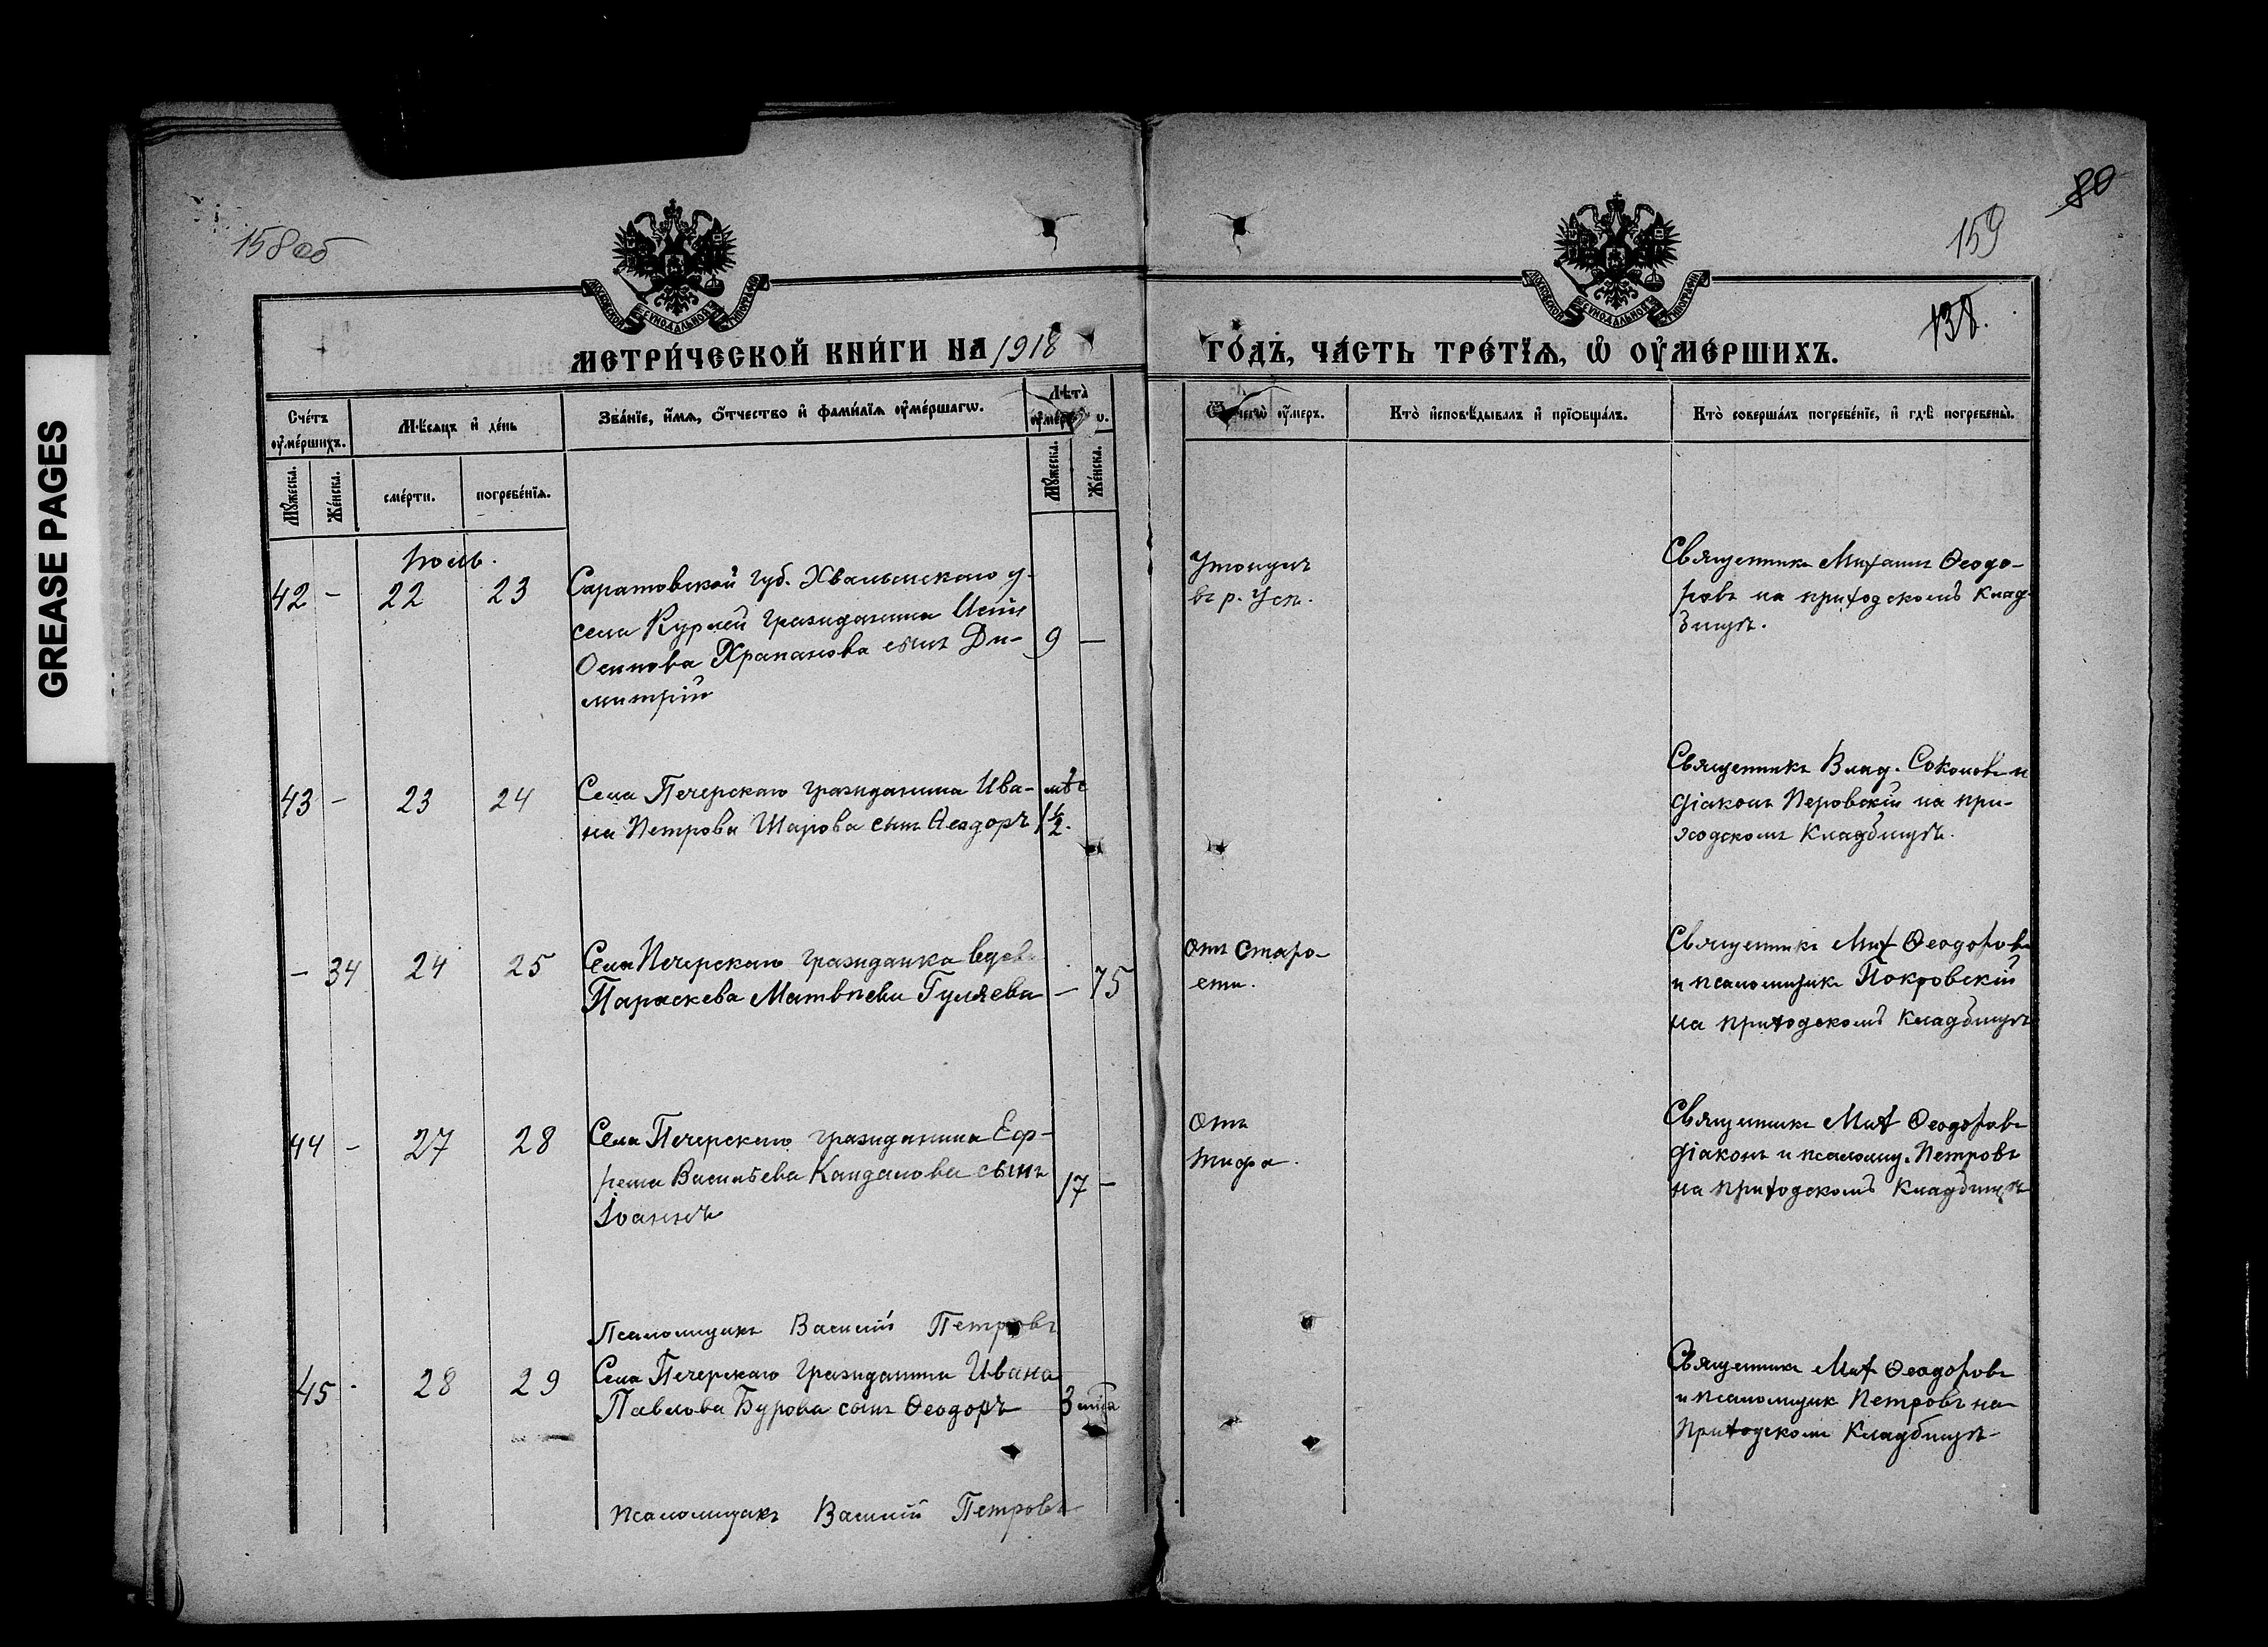 GREASE PAGES
158 об
80
159
138.
МОСКОВСКОЙ СѴНОДАЛЬНОЙ ТИПОГРАФІИ
МОСКОВСКОЙ СѴНОДАЛЬНОЙ ТИПОГРАФІИ
МЕТРИ́ЧЕСКОЙ КНИ́ГИ НА 1918 ГО́ДЪ, ЧА́СТЬ ТРЕ́ТІѦ, Ѡ҆ ОУ҆МЕ́РШИХЪ.
Сче́тъ оу҆ме́ршихъ.
Мꙋ́жеска.
Же́нска.
Мѣ́сѧцъ и҆ де́нь
сме́рти.
погребе́нїѧ.
Зва́нїе, и҆́мѧ, ѻ҆́тчество и҆ фами́лїѧ оу҆ме́ршагѡ.
Лѣ́та
Мꙋ́жеска.
Же́нска.
Ѿ чегѡ̀ оу҆́меръ.
Кто̀ и҆сповѣ́дывалъ и҆ прїѡбща́лъ.
Кто̀ соверша́лъ погребе́нїе, и҆ гдѣ̀ погребены̀.
Іюль.
42 - 22 23
Саратовской губ. Хвалынскаго у.
села гражданина
Осипова сынъ Ди-
митрій
9 —
Утонулъ
въ р.
Священникъ Михаилъ Ѳеодо-
ровъ на приходскомъ клад-
бищѣ.
43 - 23 24
Села Печерскаго гражданина Ива-
на Петрова Шарова сынъ Ѳеодоръ
мѣс
1½.
Священникъ Влад. Соколовъ и
діаконъ Перовскій на при-
ходскомъ кладбищѣ.
- 34 24 25
Села Печерскаго гражданка вдова
Параскева Матвѣева Гуляева
— 75
Отъ старо-
сти.
Священникъ Мих Ѳеодоровъ
и псаломщикъ Покровскій
на приходскомъ кладбищѣ
44 - 27 28
Села Печерскаго гражданина Еф-
рема Васильева Кандалова сынъ
Іоаннъ
17 -
Отъ
тифа.
Священникъ Мих Ѳеодоровъ
діаконъ и псаломщ. Петровъ
на приходскомъ кладбищѣ
Псаломщикъ Василій Петровъ
45 - 28 29
Села Печерскаго гражданина Ивана
Павлова Бурова сынъ Ѳеодоръ
3 мѣца
Священникъ Мих Ѳеодоровъ
и псаломщик Петровъ на
приходскомъ кладбищѣ-
Псаломщикъ Василій Петровъ